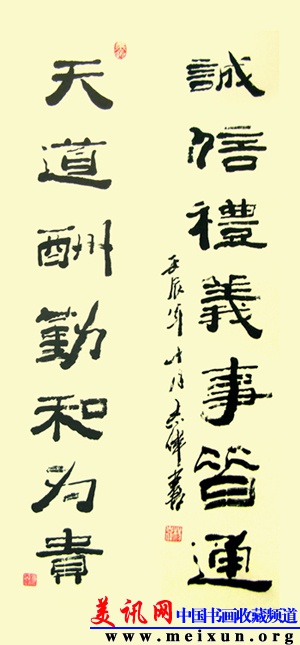 天道酬勤和为貴
誠信禮義事皆通
壬辰年 月 書
美讯网 中国书画收藏频道
www.meixun.org